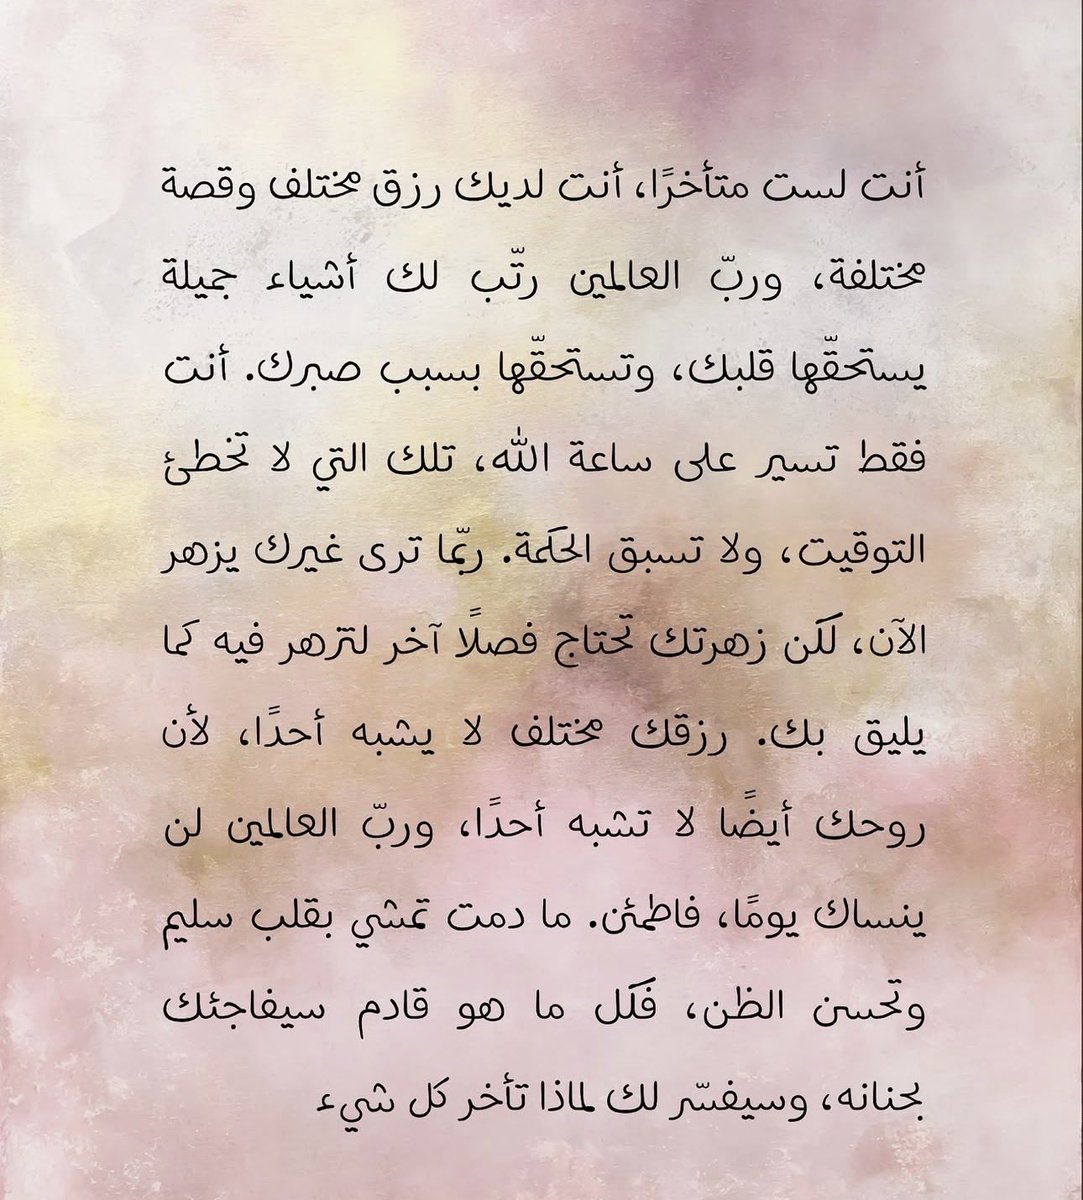 أنت لست متأخرًا، أنت لديك رزق مختلف وقصة
مختلفة، وربّ العالمين رتّب لك أشياء جميلة
يستحقّها قلبك، وتستحقّها بسبب صبرك. أنت
فقط تسير على ساعة الله، تلك التي لا تخطئ
التوقيت، ولا تسبق الحكمة. ربّما ترى غيرك يزهر
الآن، لكن زهرتك تحتاج فصلًا آخر لتزهر فيه كما
يليق بك. رزقك مختلف لا يشبه أحدًا، لأن
روحك أيضًا لا تشبه أحدًا، وربّ العالمين لن
ينساك يومًا، فاطمئن. ما دمت تمشي بقلب سليم
وتحسن الظن، فكل ما هو قادم سيفاجئك
بحنانه، وسيفسّر لك لماذا تأخر كل شيء